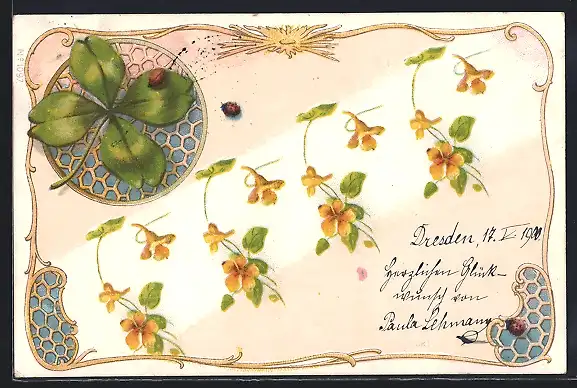 Dresden, 17. V 1900.
Herzlichen Glück-
wunsch von
Paula Lehmann